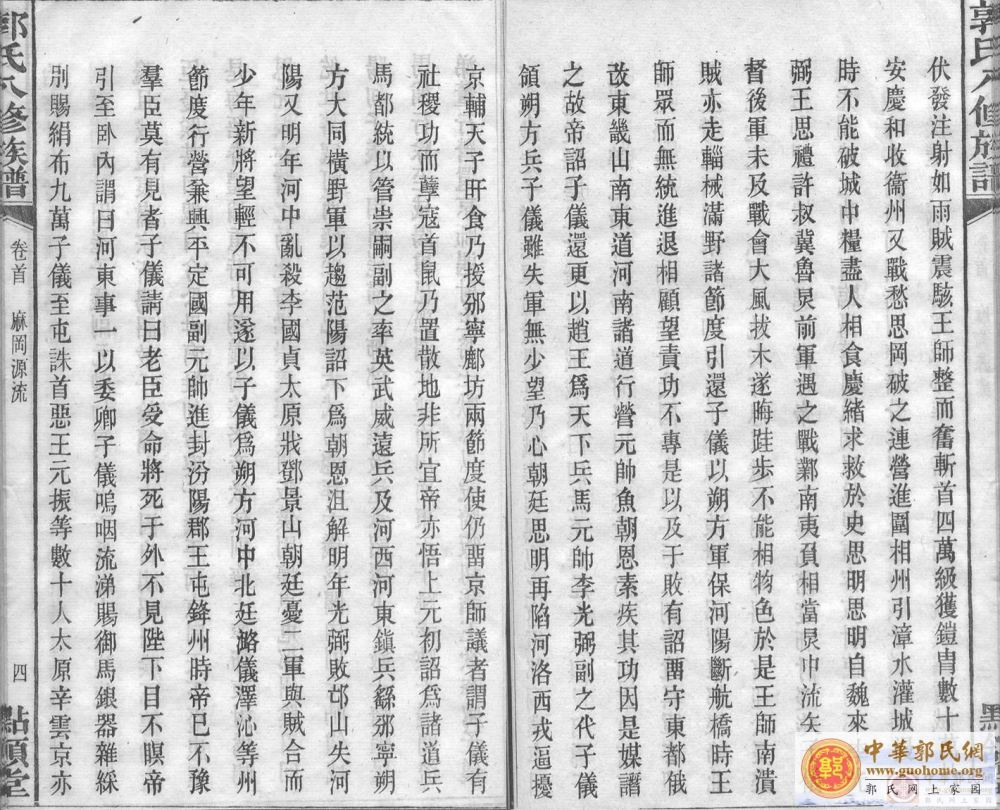 郭氏八修族譜
伏發注射如雨賊震駭王師整而奮斬首四萬級獲鎧胄數十
安慶和收衞州又戰愁思岡破之連營進圍相州引漳水灌城
時不能破城中糧盡人相食慶緒求救於史思明思明自魏來
弼王思禮許叔冀魯炅前軍遇之戰鄴南夷負相當炅中流矢
督後軍未及戰會大風拔木遂晦跬步不能相物色於是王師南潰
賊亦走輜械滿野諸節度引還子儀以朔方軍保河陽斷航橋時王
師眾而無統進退相顧望責功不專是以及于敗有詔畱守東都俄
改東畿山南東道河南諸道行營元帥魚朝恩素疾其功因是媒譖
之故帝詔子儀還更以趙王爲天下兵馬元帥李光弼副之代子儀
領朔方兵子儀雖失軍無少望乃心朝廷思明再陷河洛西戎逼擾
京輔天子旰食乃授邠寧鄜坊兩節度使仍畱京師議者謂子儀有
社稷功而孽寇首鼠乃置散地非所宜帝亦悟上元初詔爲諸道兵
馬都統以管崇嗣副之率英武威遠兵及河西河東鎮兵繇邠寧朔
方大同橫野軍以趨范陽詔下爲朝恩沮解明年光弼敗邙山失河
陽又明年河中亂殺李國貞太原戕鄧景山朝廷憂二軍與賊合而
少年新將望輕不可用遂以子儀爲朔方河中北廷潞儀澤沁等州
節度行營兼興平定國副元帥進封汾陽郡王屯絳州時帝已不豫
羣臣莫有見者子儀請曰老臣受命將死于外不見陛下目不瞑帝
引至卧內謂曰河東事一以委卿子儀嗚咽流涕賜御馬銀器雜綵
別賜絹布九萬子儀至屯誅首惡王元振等數十人太原辛雲京亦
郭氏八修族譜
卷首 麻岡源流
四
點頭堂
中華郭氏網
www.guohome.org
郭氏网上家园